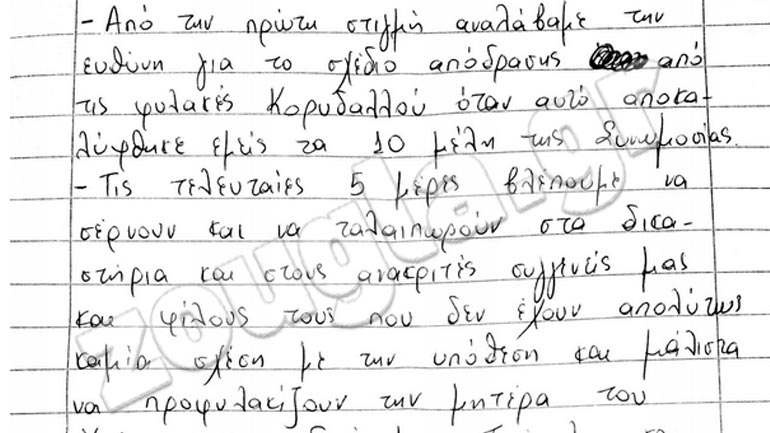 - Από την πρώτη στιγμή αναλάβαμε την
ευθύνη για το σχέδιο απόδρασης από
τις φυλακές Κορυδαλλού όταν αυτό αποκα-
λύφθηκε εμείς τα 10 μέλη της Συνωμοσίας.
- Τις τελευταίες 5 μέρες βλέπουμε να
σέρνουν και να ταλαιπωρούν στα δικα-
στήρια και στους ανακριτές συγγενείς μας
και φίλους τους που δεν έχουν απολύτως
καμία σχέση με την υπόθεση και μάλιστα
να προφυλακίζουν την μητέρα του
zougla.gr